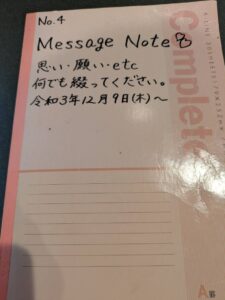 No.4
Message Note
思い・願い・etc
何でも綴ってください。
令和3年12月9日(木)～
Complete
A罫